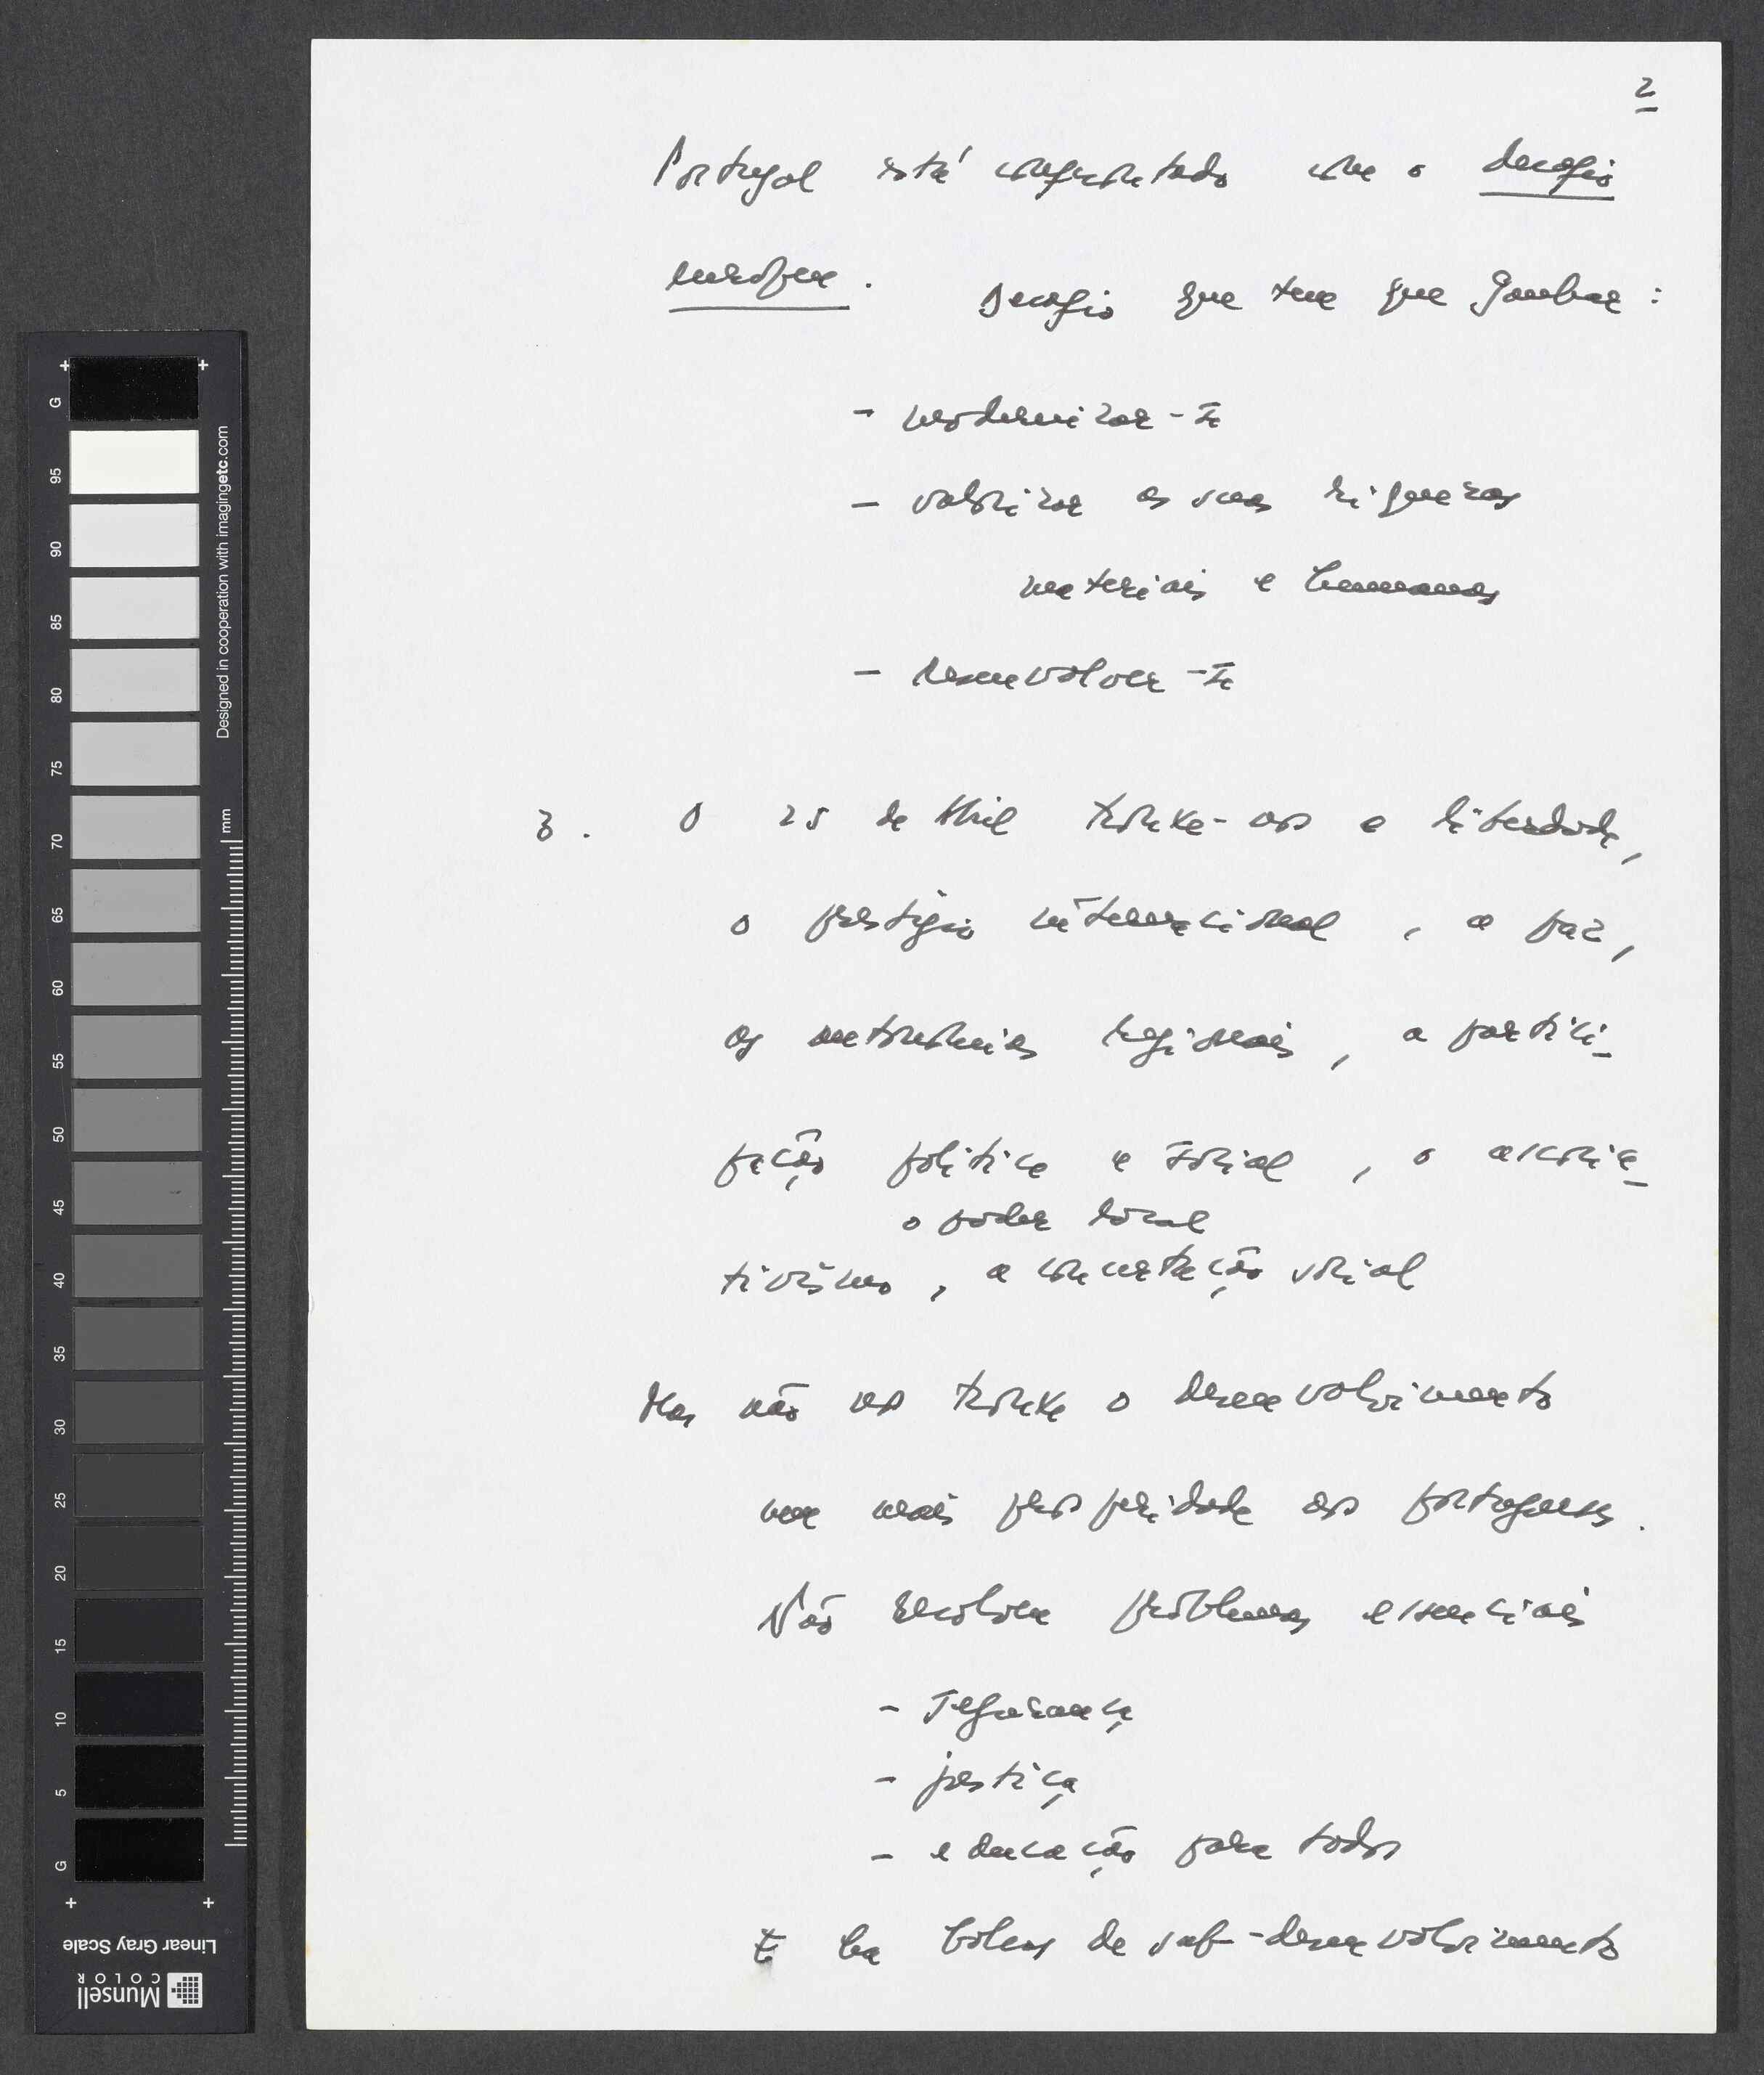 2
Portugal está confrontado com o desafio
europeu. Desafio que tem que ganhar:
- modernizar-se
- valorizar as suas riquezas
materiais e humanas
- desenvolver-se
3. O 25 de Abril trouxe-nos a liberdade,
o prestígio internacional, a paz,
as autonomias regionais, a partici-
pação política e social, o associa-
o poder local
tivismo, a concertação social
Mas não nos trouxe o desenvolvimento
nem mais prosperidade aos portugueses.
Não resolveu problemas essenciais
- segurança
- justiça
- educação para todos
E há bolsas de sub-desenvolvimento
G
95
90
85
80
75
70
65
60
55
50
45
40
35
30
25
20
15
10
5
G
mm
Designed in cooperation with imagingetc.com
Linear Gray Scale
Munsell
COLOR